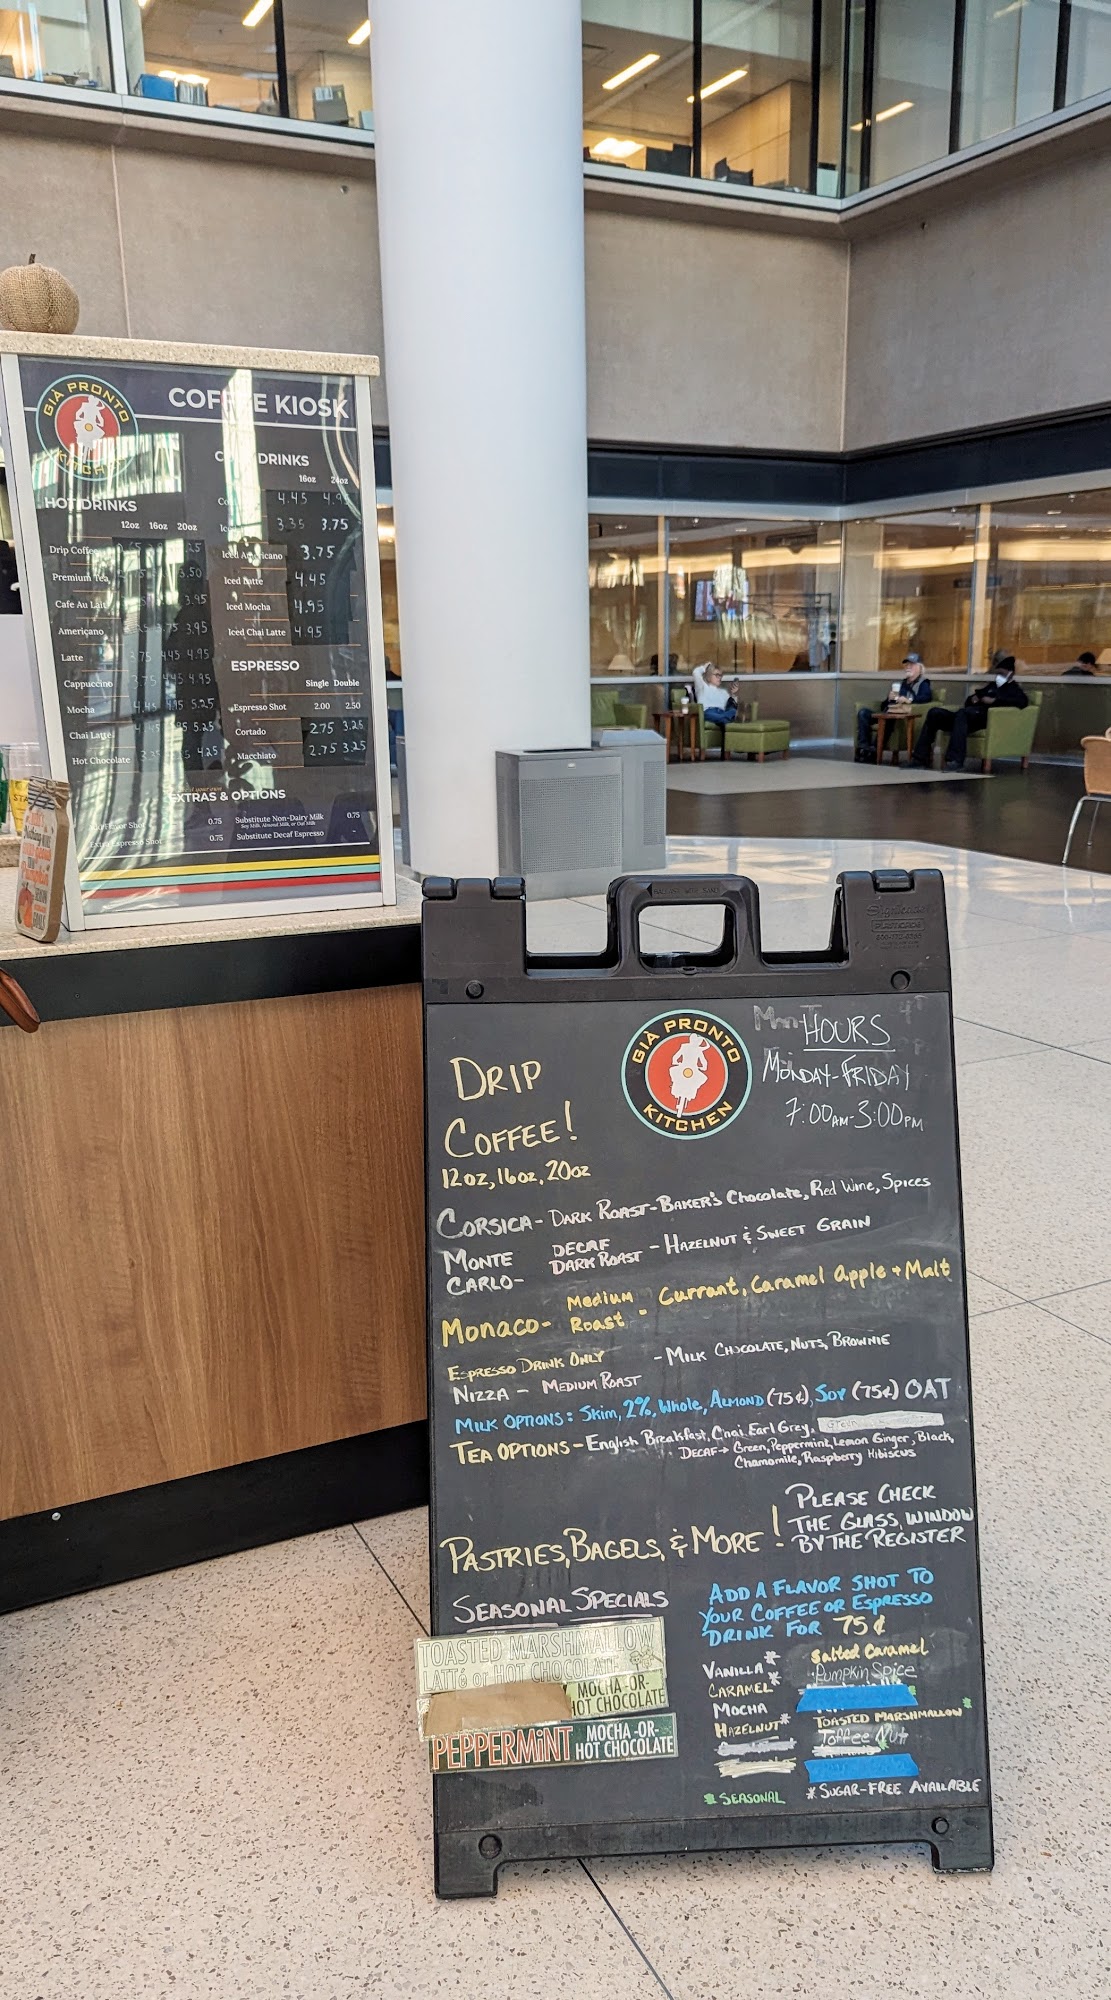 GIÀ PRONTO
COFFEE KIOSK
DRINKS
16oz 24oz
4.45
3.35 3.75
Iced Americano 3.75
Iced Latte 4.45
Iced Mocha 4.95
Iced Chai Latte 4.95
ESPRESSO
Single Double
Espresso Shot 2.00 2.50
Cortado 2.75 3.25
Macchiato 2.75 3.25
HOT DRINKS
12oz 16oz 20oz
Drip Coffee
Premium Tea 3.50
Cafe Au Lait 3.95
Americano 3.75 3.95
Latte 3.75 4.45 4.95
Cappuccino 3.75 4.45 4.95
Mocha 4.45 4.95 5.25
Chai Latte 5.25
Hot Chocolate 4.25
EXTRAS & OPTIONS
Shot 0.75
Extra Espresso Shot 0.75
Substitute Non-Dairy Milk 0.75
Soy Milk, Almond Milk, or Oat Milk
Substitute Decaf Espresso -
GIÀ PRONTO
KITCHEN
HOURS
MONDAY-FRIDAY
7:00AM-3:00PM
DRIP
COFFEE!
12oz, 16oz, 20oz
CORSICA- DARK ROAST-BAKER'S Chocolate, Red Wine, Spices
MONTE CARLO- DECAF DARK ROAST - HAZELNUT & SWEET GRAIN
Monaco- Medium Roast - Currant, Caramel Apple + Malt
ESPRESSO DRINK ONLY
NIZZA - MEDIUM ROAST - MILK CHOCOLATE, NUTS, BROWNIE
MILK OPTIONS: Skim, 2%, Whole, ALMOND (75¢), SOY (75¢) OAT
TEA OPTIONS - English Breakfast, Chai, Earl Grey,
DECAF→ Green, Peppermint, Lemon Ginger, Black,
Chamomile, Raspberry Hibiscus
PASTRIES, BAGELS, & MORE!
PLEASE CHECK
THE GLASS WINDOW
BY THE REGISTER
SEASONAL SPECIALS
TOASTED MARSHMALLOW
LATTé or HOT CHOCOLATE
MOCHA -OR-
HOT CHOCOLATE
PEPPERMiNT MOCHA -OR-
HOT CHOCOLATE
ADD A FLAVOR SHOT TO
YOUR COFFEE OR ESPRESSO
DRINK FOR 75¢
VANILLA*
CARAMEL*
MOCHA
HAZELNUT*
Salted Caramel
Pumpkin Spice
TOASTED MARSHMALLOW*
Toffee Nut
* SEASONAL
*SUGAR-FREE AVAILABLE